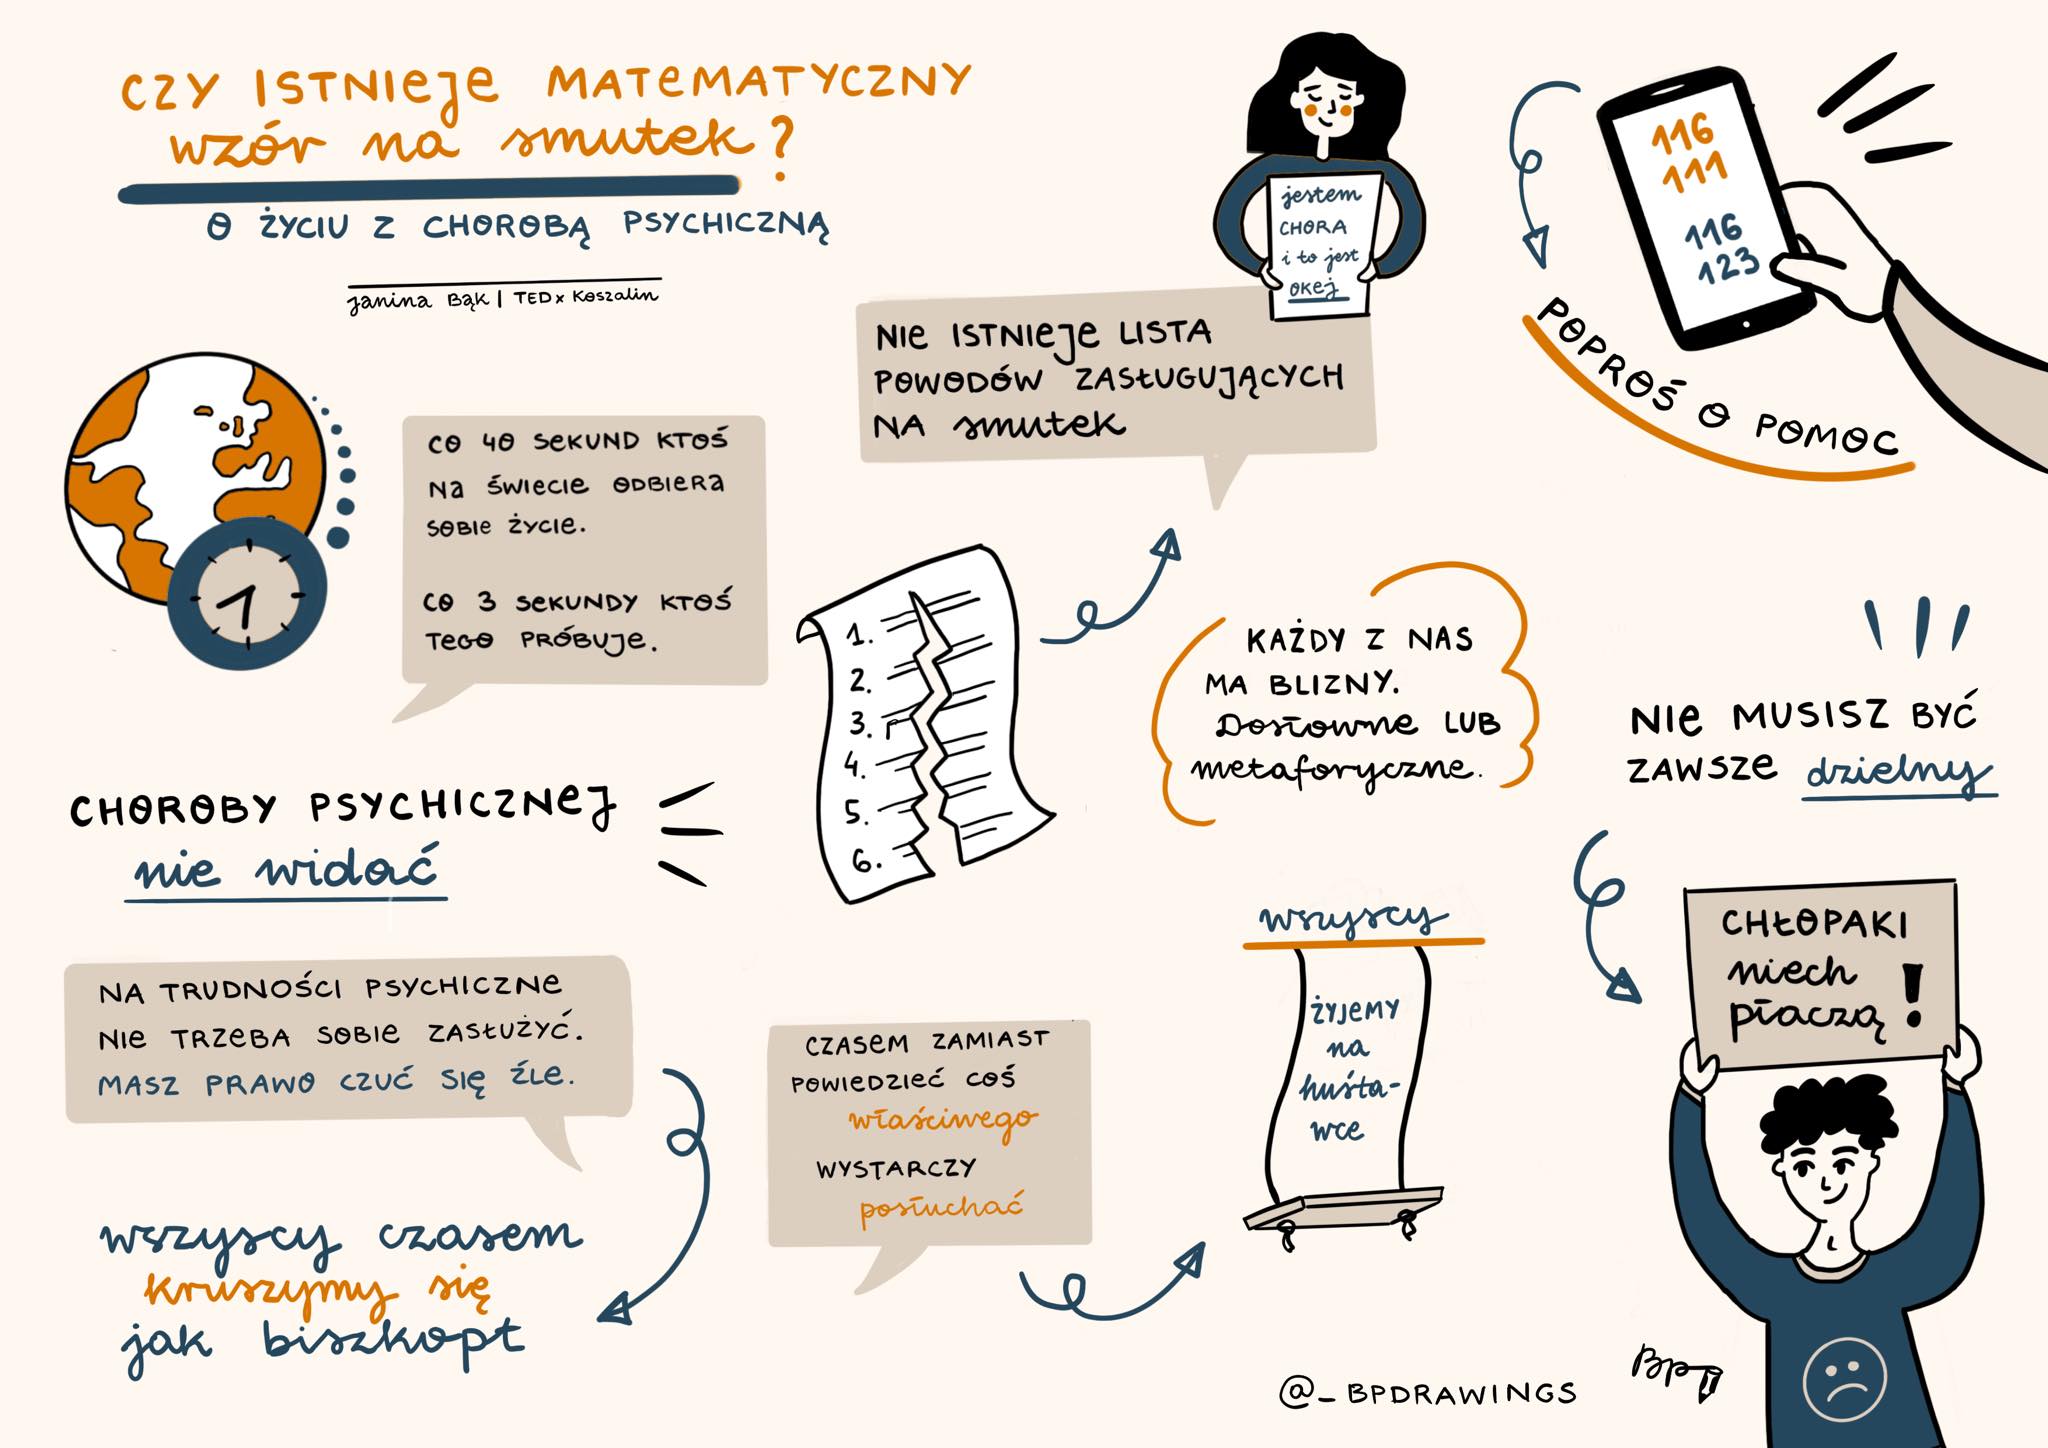 CZY ISTNIEJE MATEMATYCZNY
wzór na smutek?
O ŻYCIU Z CHOROBĄ PSYCHICZNĄ
Janina Bąk | TEDx Koszalin
CO 40 SEKUND KTOŚ
NA ŚWIECIE ODBIERA
SOBIE ŻYCIE.
CO 3 SEKUNDY KTOŚ
TEGO PRÓBUJE.
CHOROBY PSYCHICZNEJ
nie widać
NA TRUDNOŚCI PSYCHICZNE
NIE TRZEBA SOBIE ZASŁUŻYĆ.
MASZ PRAWO CZUĆ SIĘ ŹLE.
wszyscy czasem
kruszymy się
jak biszkopt
jestem
CHORA
i to jest
okej
NIE ISTNIEJE LISTA
POWODÓW ZASŁUGUJĄCYCH
NA smutek
1.
2.
3.
4.
5.
6.
CZASEM ZAMIAST
POWIEDZIEĆ COŚ
właściwego
WYSTARCZY
posłuchać
KAŻDY Z NAS
MA BLIZNY.
Dosłowne LUB
metaforyczne.
wszyscy
ŻYJEMY
na
huśta-
wce
116
111
116
123
POPROŚ O POMOC
NIE MUSISZ BYĆ
ZAWSZE dzielny
CHŁOPAKI
niech
płaczą!
@_BPDRAWINGS
Bp